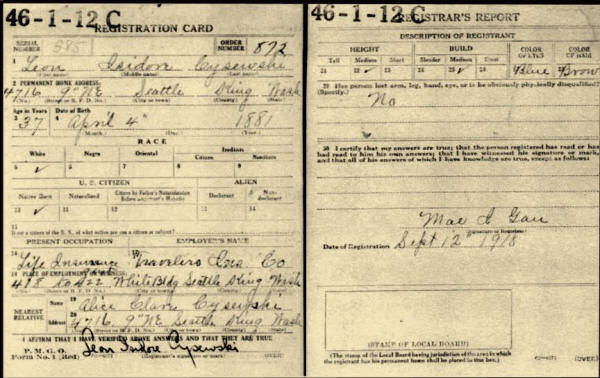 46-1-12 C
REGISTRATION CARD
SERIAL NUMBER 585
ORDER NUMBER 872
1 Leon Isidore Cysewski
(First name) (Middle name) (Last name)
2 PERMANENT HOME ADDRESS:
4716 9" NE Seattle King Wash
(No.) (Street or R. F. D. No.) (City or town) (County) (State)
Age in Years Date of Birth
3 37 4 April 4" 1881
(Month.) (Day.) (Year.)
RACE
White Negro Oriental Indian
Citizen Noncitizen
5 ✓ 6 7 8 9
U. S. CITIZEN ALIEN
Native Born Naturalized Citizen by Father's Naturalization Before Registrant's Majority Declarant Non-declarant
10 ✓ 11 12 13 14
15
If not a citizen of the U. S., of what nation are you a citizen or subject?
PRESENT OCCUPATION EMPLOYER'S NAME
16 Life Insurance 17 Travelers Ins Co
18 PLACE OF EMPLOYMENT OR BUSINESS:
418 to 422 White Bldg Seattle King Wash
(No.) (Street or R. F. D. No.) (City or town) (County) (State)
NEAREST RELATIVE
Name 19 Alice Clare Cysewski
Address 20 4716 9" NE Seattle King Wash
(No.) (Street or R. F. D. No.) (City or town) (County) (State)
I AFFIRM THAT I HAVE VERIFIED ABOVE ANSWERS AND THAT THEY ARE TRUE
P. M. G. O.
Form No. 1 (Red) Leon Isidore Cysewski
(Registrant's signature or mark) (OVER)
46-1-12 C
REGISTRAR'S REPORT
DESCRIPTION OF REGISTRANT
HEIGHT BUILD COLOR OF EYES COLOR OF HAIR
Tall Medium Short Slender Medium Stout
21 22 ✓ 23 24 25 ✓ 26 27 Blue 28 Brow
29 Has person lost arm, leg, hand, eye, or is he obviously physically disqualified?
(Specify.)
No
30 I certify that my answers are true; that the person registered has read or has
had read to him his own answers; that I have witnessed his signature or mark,
and that all of his answers of which I have knowledge are true, except as follows:
(Signature of Registrar)
Date of Registration Sept 12" 1918
(STAMP OF LOCAL BOARD)
(The stamp of the Local Board having jurisdiction of the area in which
the registrant has his permanent home shall be placed in this box.)
(OVER)